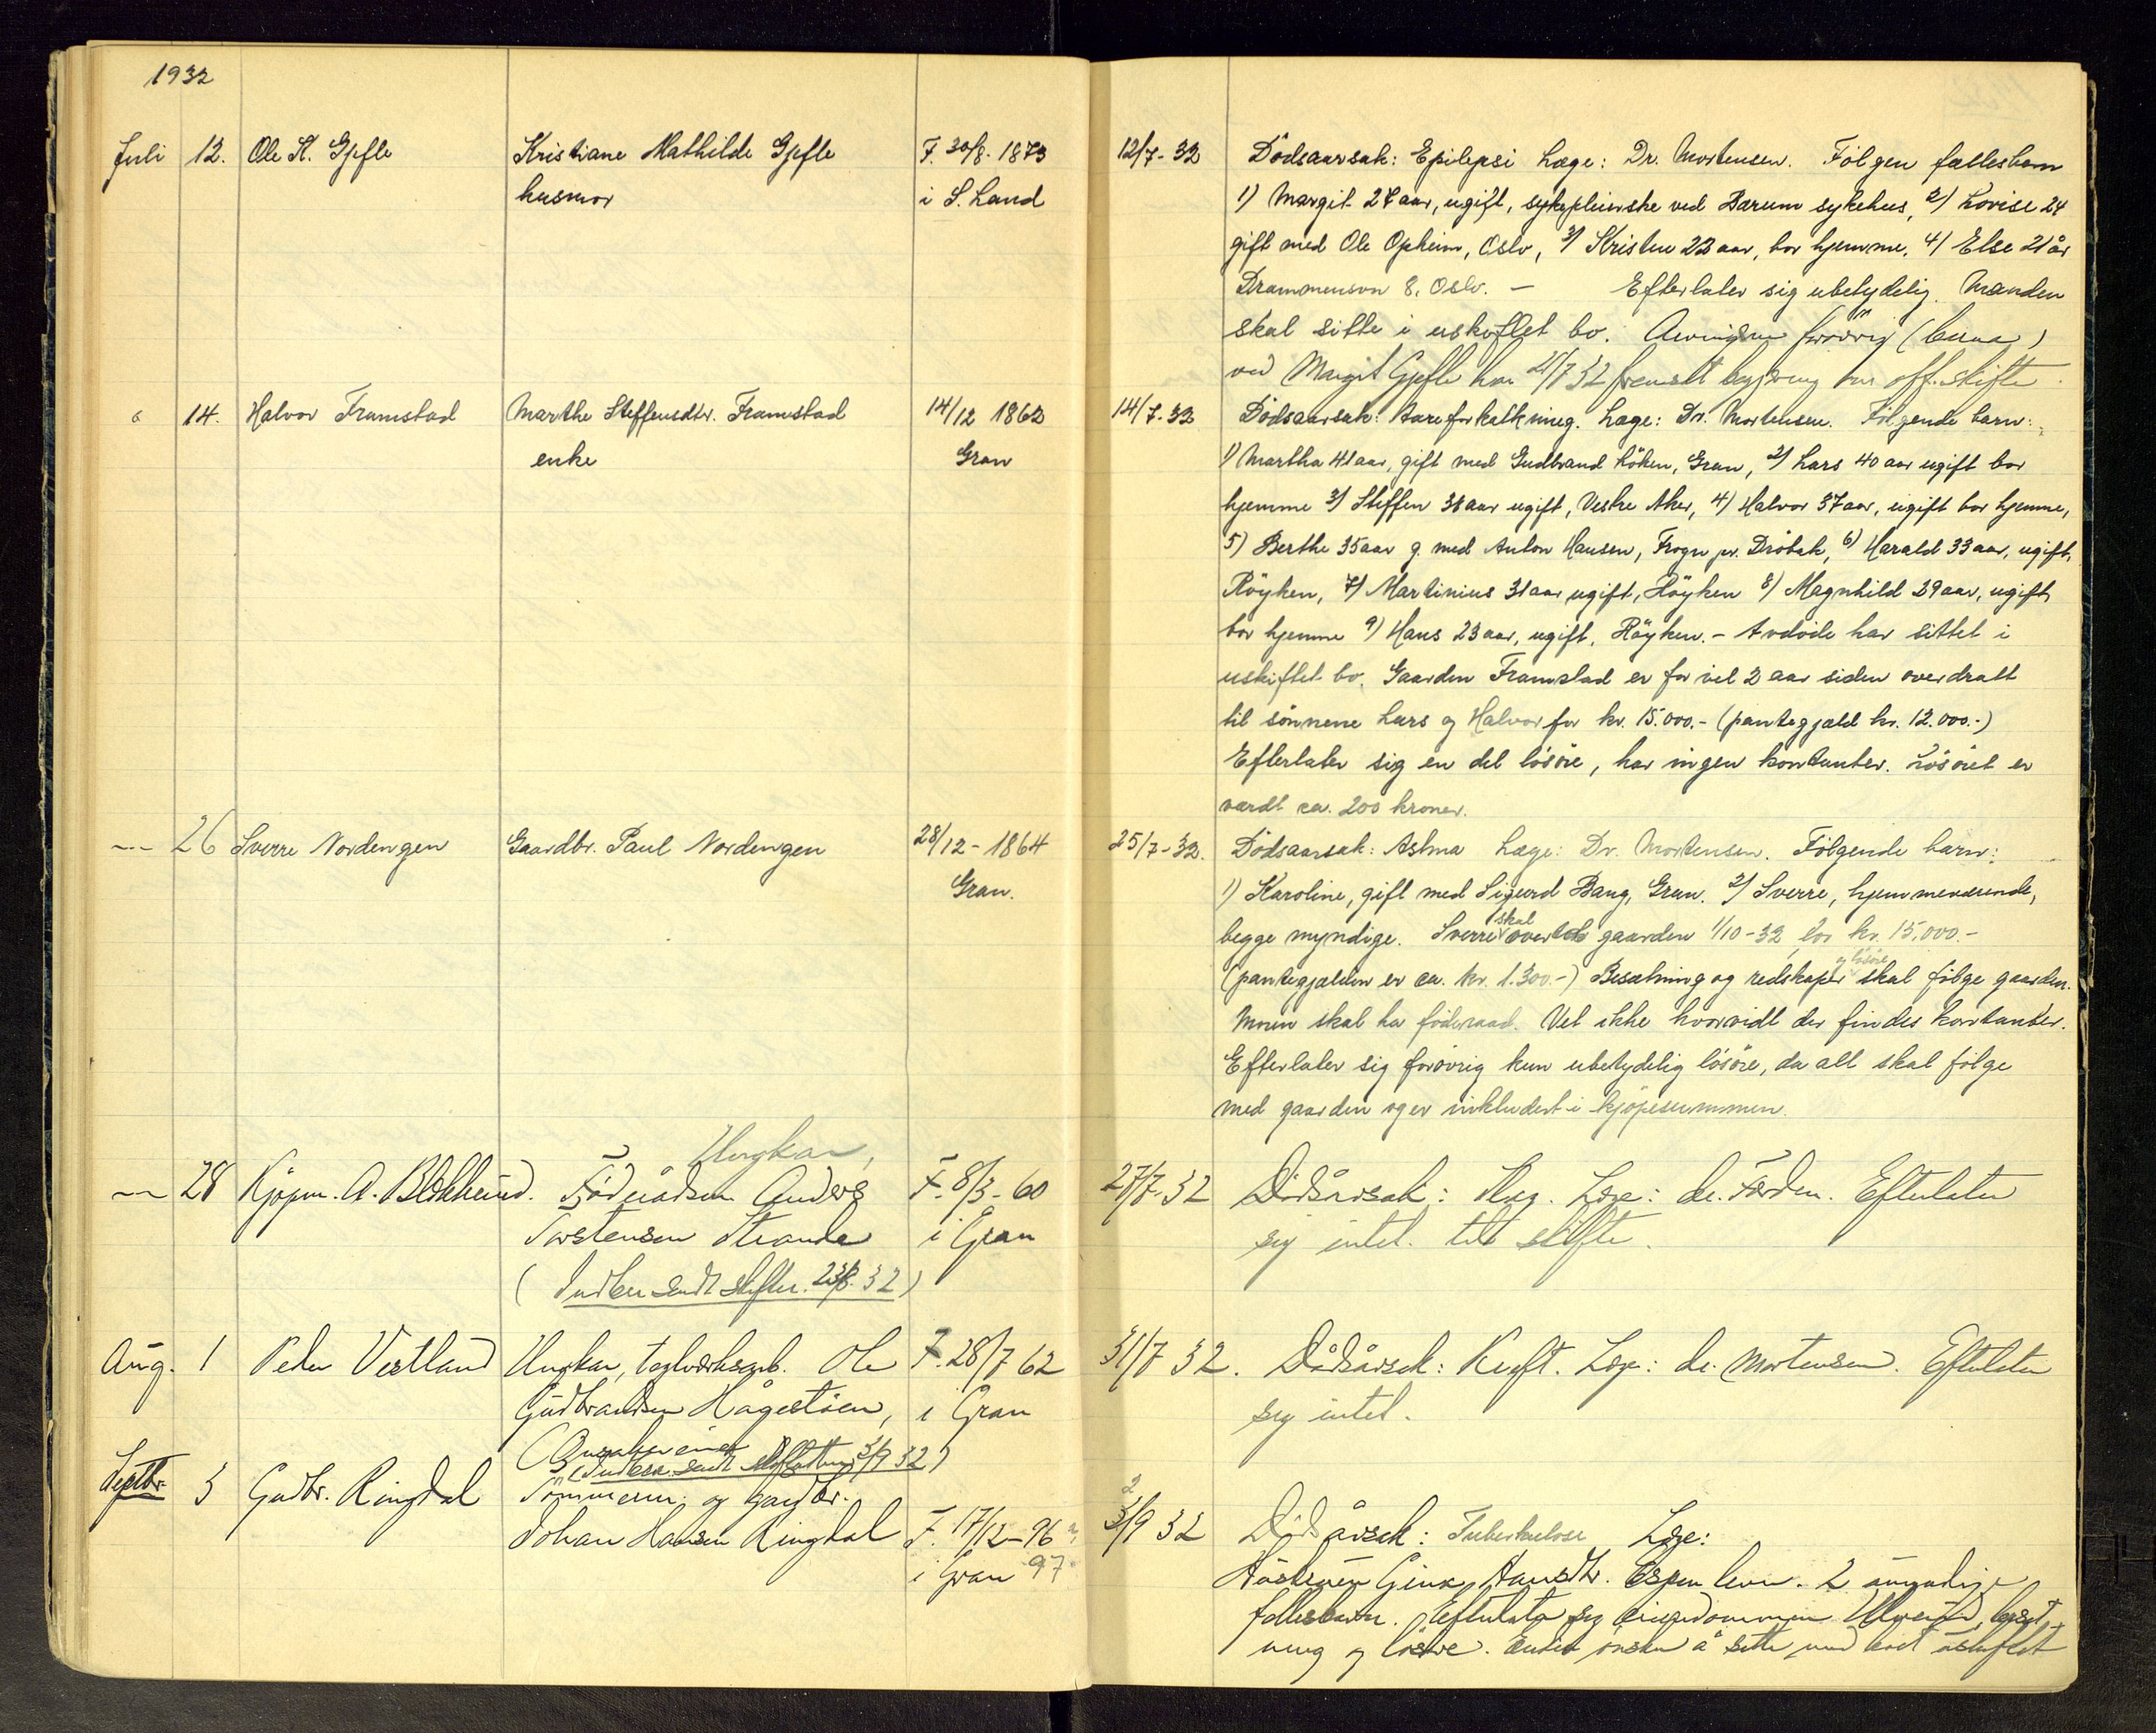 1932
Juli 12. Ole K. Gjefle Kristiane Mathilde Gjefle F. 30/8. 1873 12/7-32 Dödsaarsak: Epilepsi Læge: Dr. Mortensen. Fölgen fællesbarn
husmor i S. Land 1) Margit 27 aar, ugift, sykepleierske ved Bærum sykehus, 2) Lovise 24
gift med Ole Opheim, Oslo, 3) Kristen 22 aar, bor hjemme. 4) Else 21 år
Drammensvn 8, Oslo. — Efterlater sig ubetydelig. Manden
skal sitte i uskiftet bo. Arvingene forövrig
ved Margit Gjefle har 21/7 32 fremsatt begjæring om off. skifte.
14. Halvor Framstad Marthe Steffensdtr. Framstad 14/12 1862 14/7-32 Dödsaarsak: Aareforkalkning. Læge: Dr. Mortensen. Fölgende barn:
enke Gran 1) Martha 41 aar, gift med Gudbrand Höken, Gran, 2) Lars 40 aar ugift bor
hjemme 3) Steffen 38 aar ugift, Vestre Aker, 4) Halvor 37 aar, ugift bor hjemme,
5) Berthe 35 aar g. med Anton Hansen, Frogn pr. Dröbak, 6) Harald 33 aar, ugift,
Röyken, 7) Martinius 31 aar ugift, Höyken 8) Magnhild 29 aar, ugift,
bor hjemme 9) Hans 23 aar, ugift, Röyken. - Avdöde har sittet i
uskiftet bo. Gaarden Framstad er for vel 2 aar siden overdratt
til sönnene Lars og Halvor for kr. 15.000.- (pantegjæld kr. 12.000.-)
Efterlater sig en del lösöre, har ingen kontanter. Lösöret er
værdt ca. 200 kroner.
26 Sverre Nordengen Gaardbr. Paul Nordengen 28/12-1864 25/7-32. Dödsaarsak: Astma Læge: Dr. Mortensen. Fölgende barn:
Gran. 1) Karoline, gift med Sigurd Bang, Gran. 2) Sverre, hjemmeværende,
begge myndige. Sverre skal overta gaarden 1/10-32 for kr. 15.000.-
(pantegjælden er ca. kr. 1.300.-) Besætning og redskaper og lösöre skal fölge gaarden.
Moren skal ha föderaad. Vet ikke hvorvidt der findes kontanter.
Efterlater sig forövrig kun ubetydelig lösöre, da alt skal fölge
med gaarden og er inkludert i kjöpesummen.
Ungkar,
28 Kjöpm. A. Blekkerud. Föderådsm. Anders F. 8/3-60 27/7-32 Dödsårsak: Slag. Læge: dr. Förden. Efterlater
Torstensen Stranda i Gran sig intet til skifte.
(Indber. sendt skifter. 23/8. 32)
Aug. 1 Peder Vestland Ungkar, teglverksarb. Ole F. 28/7 62 31/7 32. Dödsårsak: Kreft. Læge: dr. Mortensen. Efterlater
Gudbrandsen Hågestöen, i Gran sig intet.
(Indber. sendt skifteretten 3/9 32)
Septbr. 3 Gudbr. Ringdal Tömmerm. og gardbr. 2
Johan Hansen Ringdal F. 17/12-96? 3/9 32 Dödsårsak: Tuberkulose Læge:
i Gran 97 Hustruen Gina Hansdtr. Espen lever. 2 umyndige
fellesbarn. Efterlater sig eiendommen, beset-
ning og lösöre. Enken önsker å sitte med boet uskiftet